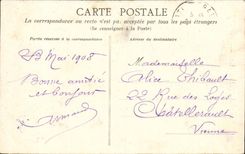 CARTE POSTALE
La correspondance au recto n'est pas acceptée par tous les pays étrangers
(Se renseigner à la Poste)
Partie réservée à la correspondance
Adresse du destinataire
23 Mai 1908
Bonne amitié
et Bonjour
Armand
Mademoiselle
Alice Thibault
22 Rue des Loges
Châtellerault
Vienne